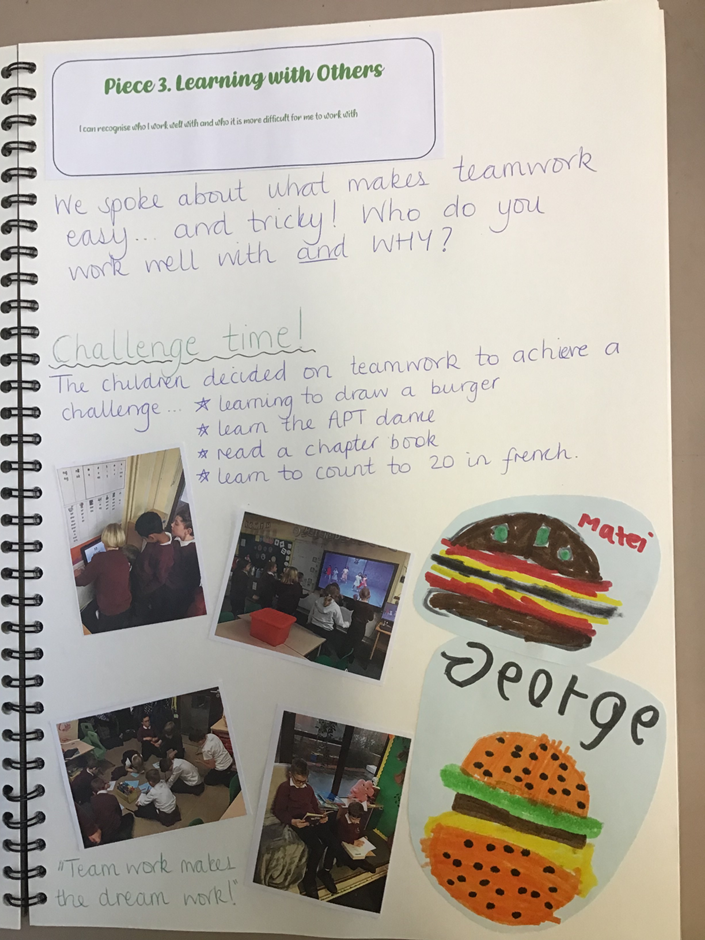 Piece 3. Learning with Others
I can recognise who I work well with and who it is more difficult for me to work with
We spoke about what makes teamwork
easy... and tricky! Who do you
work well with and WHY?
Challenge time!
The children decided on teamwork to achieve a
challenge... ☆ learning to draw a burger
☆ learn the APT dance
☆ read a chapter book
☆ learn to count to 20 in french.
Matei
George
"Team work makes
the dream work!"